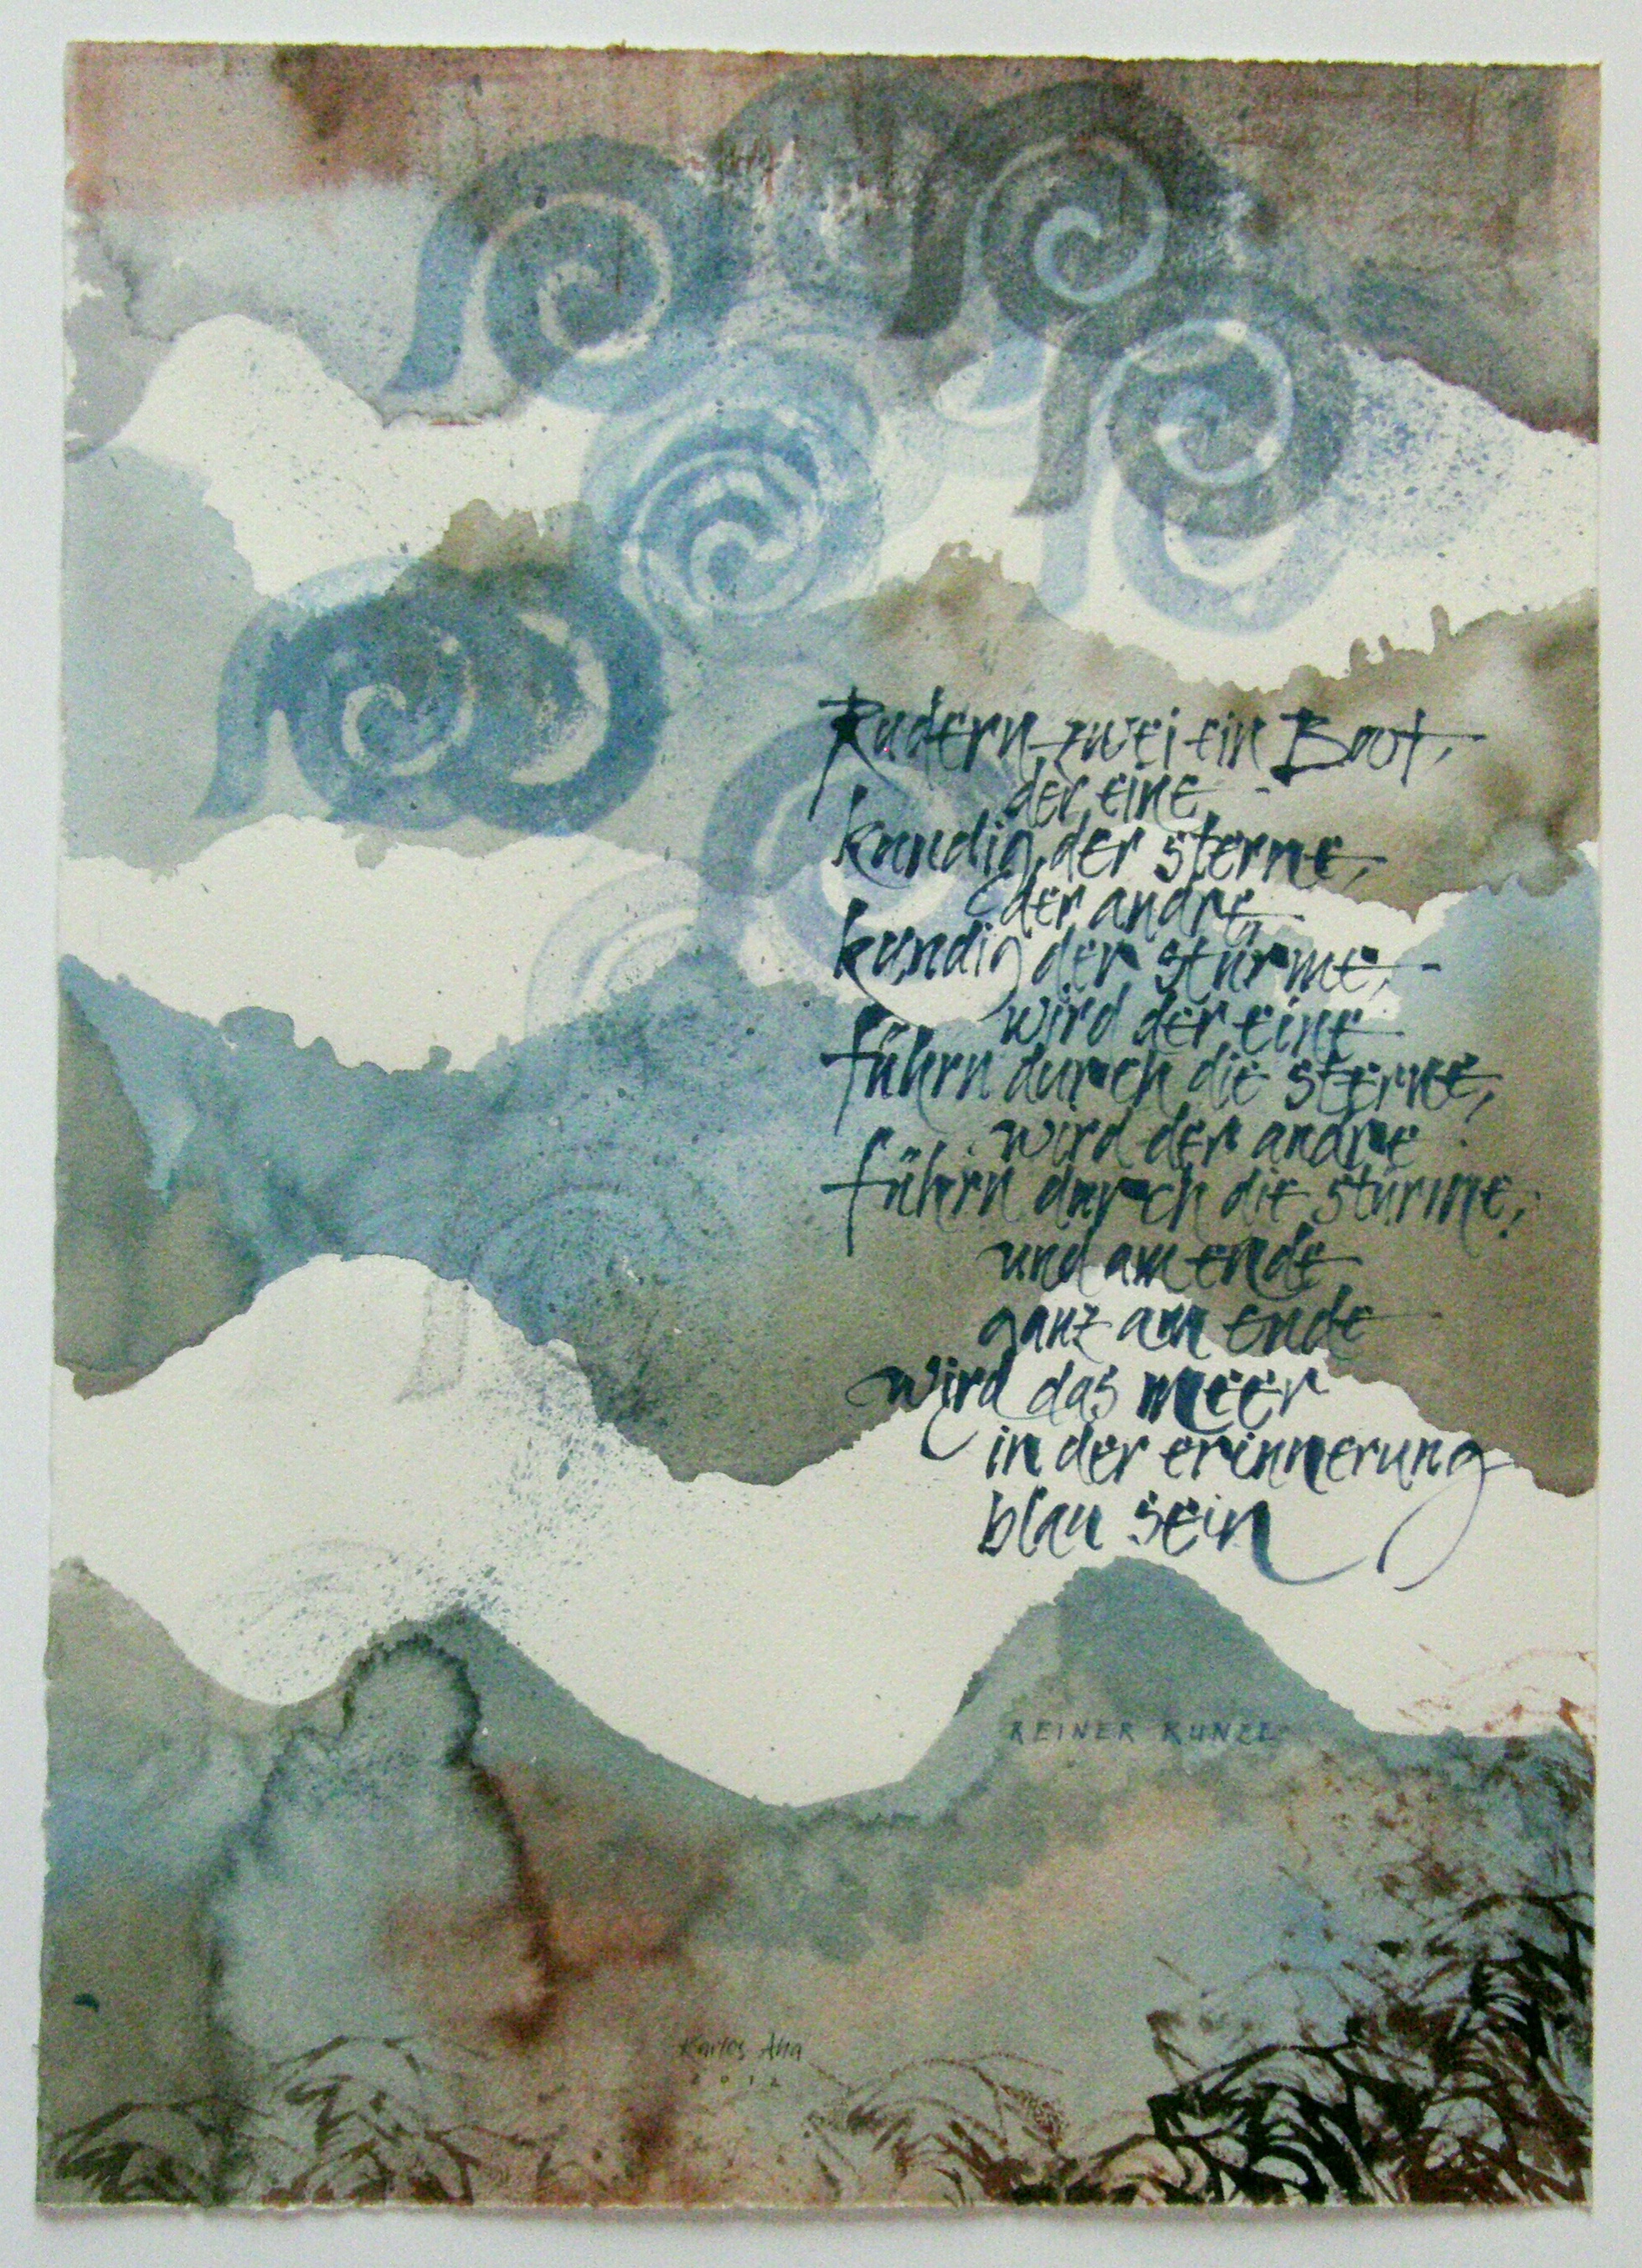 Rudern zwei ein Boot,
der eine
kundig der sterne,
der andre,
kundig der stürme,
wird der eine
führn durch die sterne,
wird der andre
führn durch die stürme;
und am ende
ganz am ende
wird das meer
in der erinnerung
blau sein
REINER KUNZE
2012